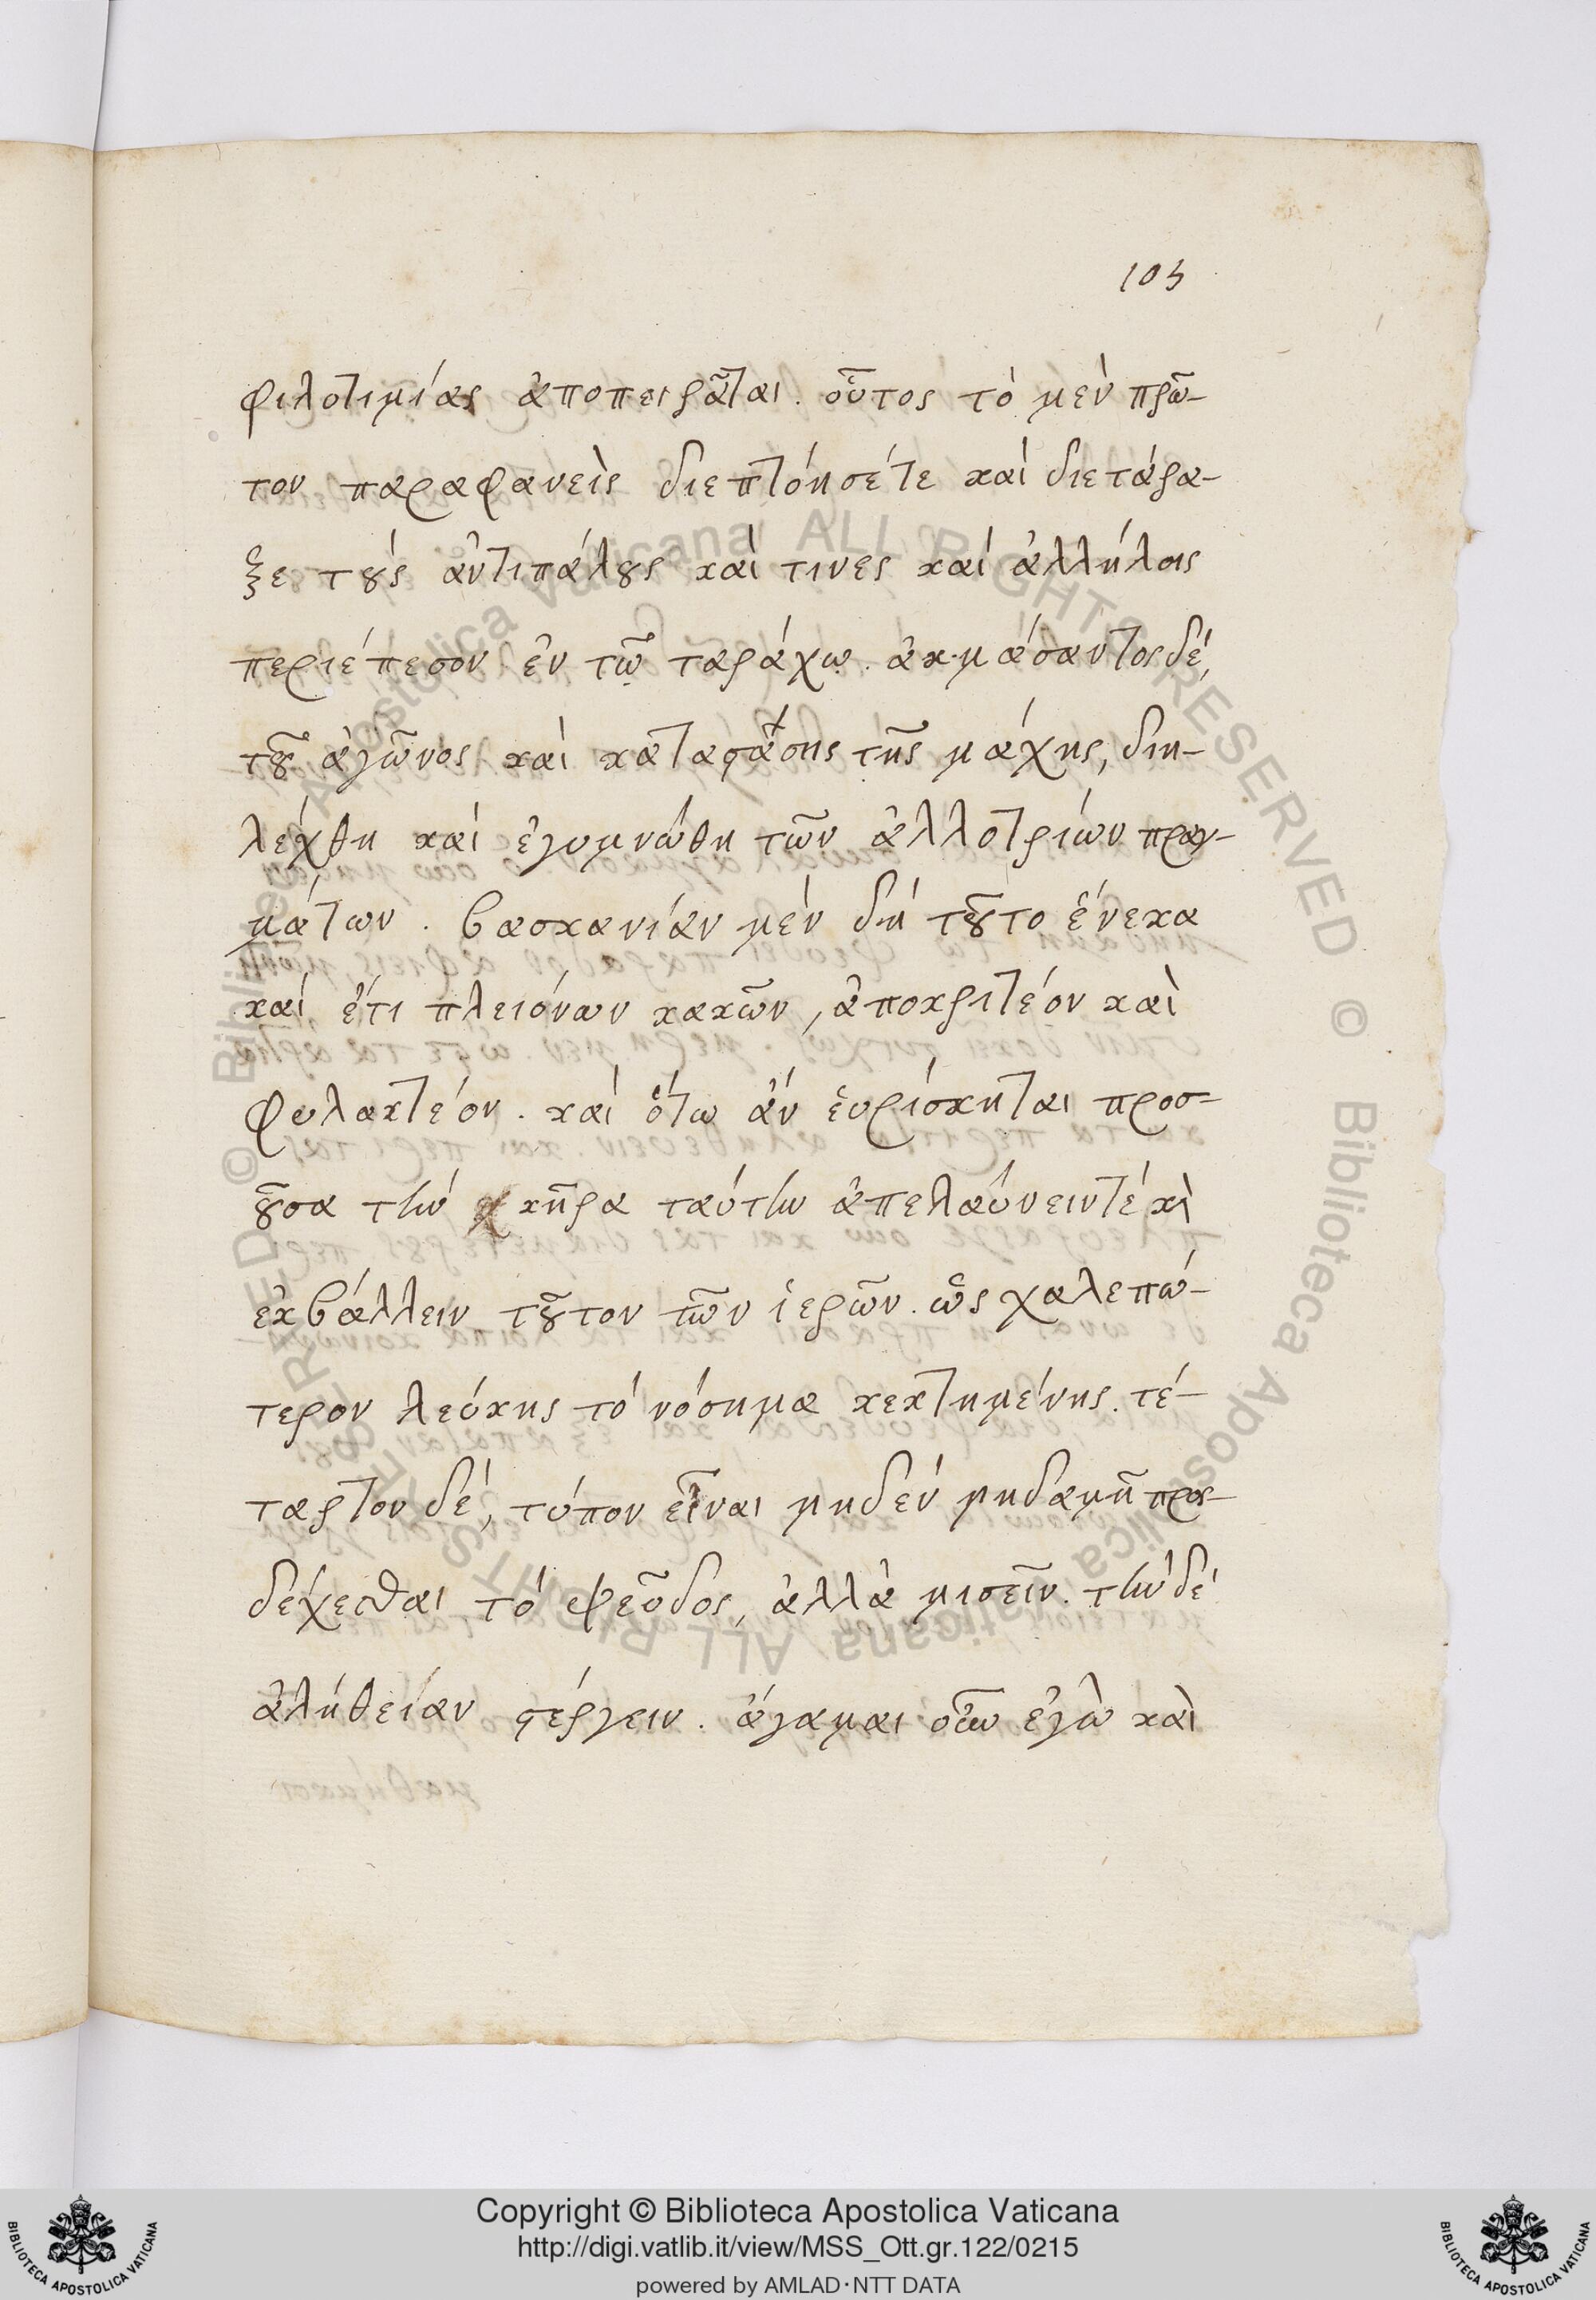 103
φιλοτιμίας ἀποπειρᾶται. οὗτος τὸ μὲν πρῶ-
τον παραφανεὶς διεπτόησέτε καὶ διετάρα-
ξε τοὺς ἀντιπάλους καὶ τινες καὶ ἀλλήλοις
περιέπεσον ἐν τῷ ταράχῳ. ἀκμάσαντος δέ,
τοῦ ἀγῶνος καὶ καταστάσης τῆς μάχης, διη-
λέχθη καὶ ἐγυμνώθη τῶν ἀλλοτρίων πραγ-
μάτων. βασκανίαν μὲν δὴ τοῦτο ἕνεκα
καὶ ἔτι πλειόνων κακῶν, ἀποκριτέον καὶ
φυλακτέον. καὶ ὅτω ἂν εὑρίσκηται προσ-
οῦσα τὴν κῆρα ταύτην ἀπελαύνειντέ καὶ
ἐκβάλλειν τοῦτον τῶν ἱερῶν. ὡς χαλεπώ-
τερον λεύκης τὸ νόσημα κεκτημένης. τέ-
ταρτον δὲ, τύπον εἶναι μηδὲν μηδαμῆ προσ-
δέχεσθαι τὸ ψεῦδος, ἀλλὰ μισεῖν. τὴν δὲ
ἀλήθειαν στέργειν. ἄγαμαι οὖν ἐγὼ καὶ
Copyright © Biblioteca Apostolica Vaticana
http://digi.vatlib.it/view/MSS_Ott.gr.122/0215
powered by AMLAD·NTT DATA